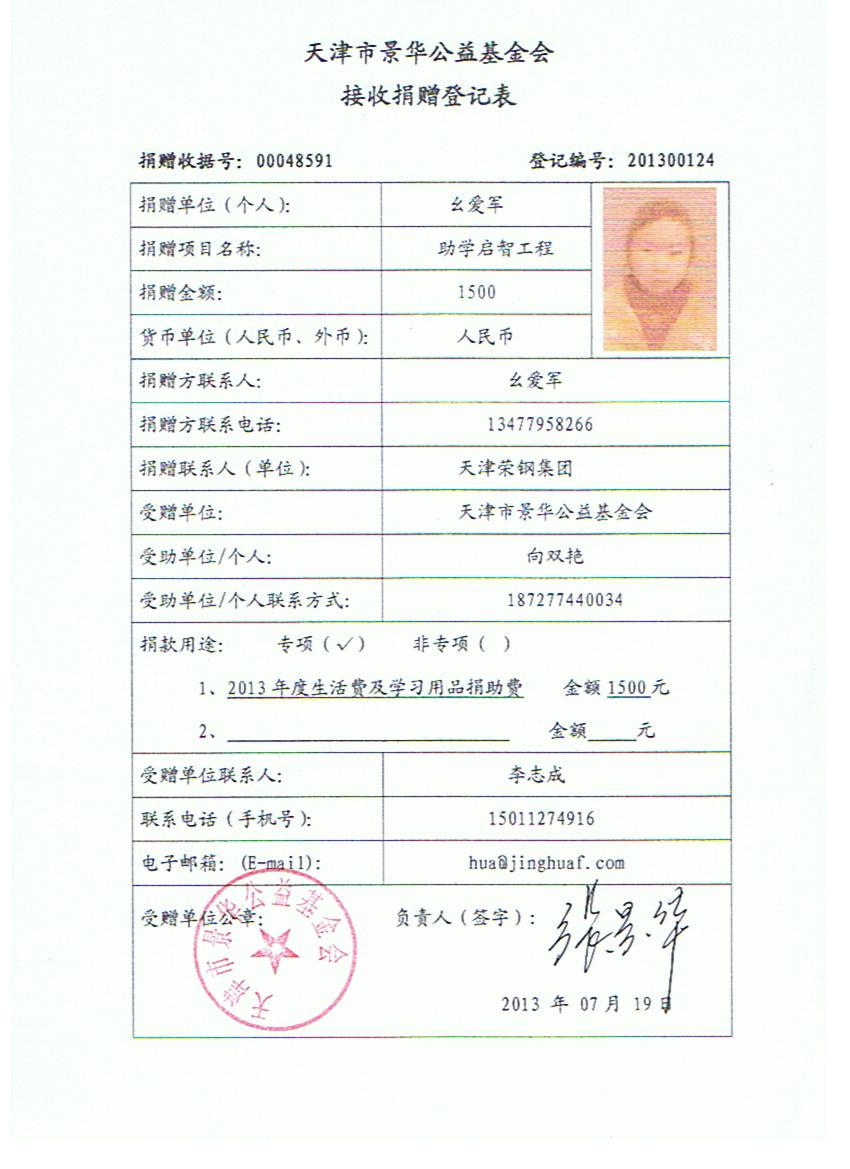 天津市景华公益基金会
接收捐赠登记表
捐赠收据号：00048591 登记编号：201300124
捐赠单位（个人）： 幺爱军
捐赠项目名称： 助学启智工程
捐赠金额： 1500
货币单位（人民币、外币）： 人民币
捐赠方联系人： 幺爱军
捐赠方联系电话： 13477958266
捐赠联系人（单位）： 天津荣钢集团
受赠单位： 天津市景华公益基金会
受助单位/个人： 向双艳
受助单位/个人联系方式： 187277440034
捐款用途： 专项（√） 非专项（ ）
1、2013 年度生活费及学习用品捐助费 金额 1500 元
2、 金额 元
受赠单位联系人： 李志成
联系电话（手机号）： 15011274916
电子邮箱：（E-mail）： hua@jinghuaf.com
受赠单位公章： 负责人（签字）： 张景华
天津市景华公益基金会
2013 年 07 月 19 日